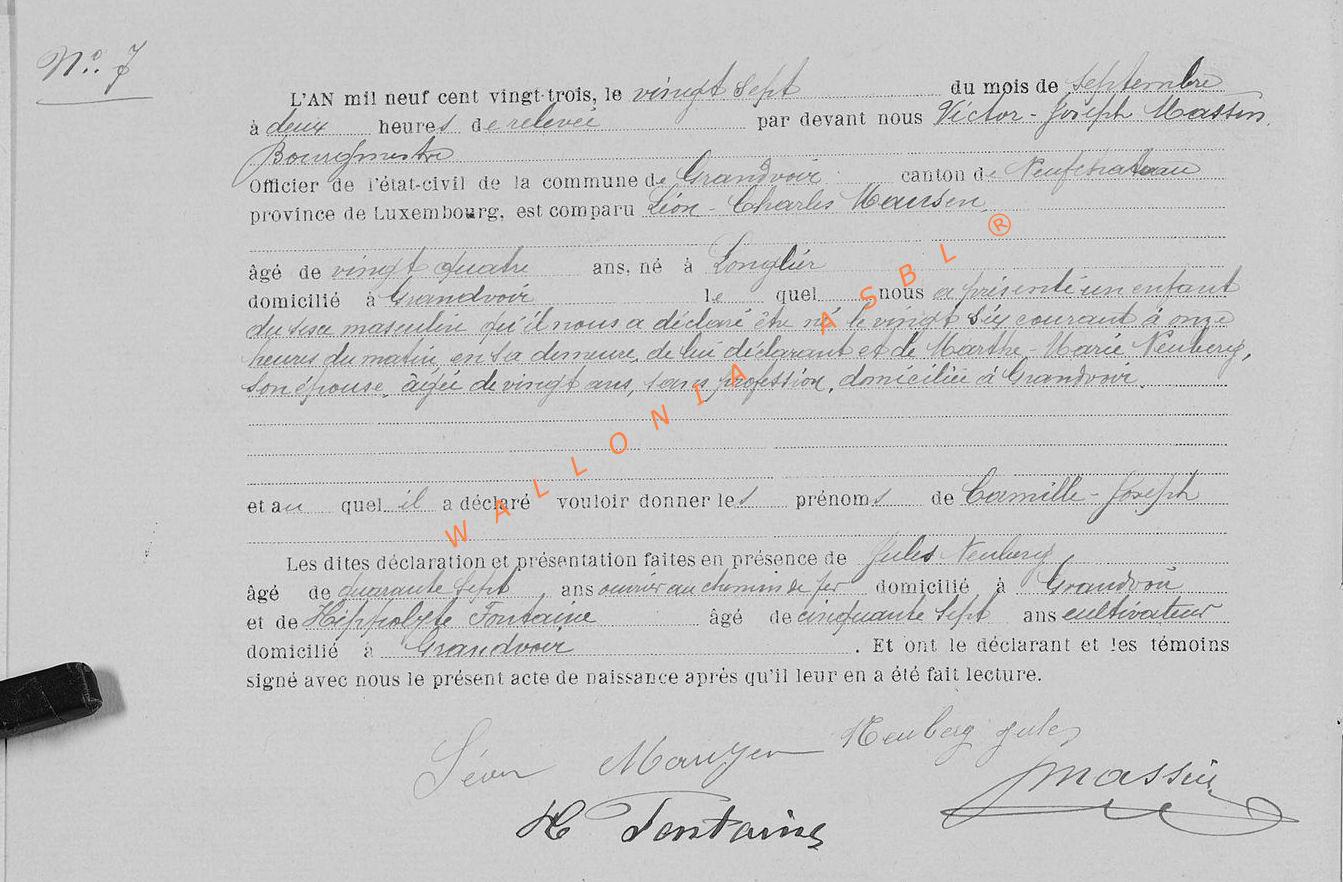 N°. 7
L'AN mil neuf cent vingt-trois, le vingt sept du mois de septembre
à deux heures de relevée par devant nous Victor-Joseph Massin,
Bourgmestre
Officier de l'état-civil de la commune de Grandvoir canton de Neufchateau
province de Luxembourg, est comparu Léon-Charles
âgé de vingt quatre ans, né à Longlier
domicilié à Grandvoir le quel nous a présenté un enfant
du sexe masculin qu'il nous a déclaré être né le vingt six courant à onze
heures du matin, en sa demeure, de lui déclarant et de Marthe-Marie Neuberg,
son épouse, âgée de vingt ans, sans profession, domiciliée à Grandvoir.
et au quel il a déclaré vouloir donner les prénoms de Camille-Joseph
Les dites déclaration et présentation faites en présence de Jules Neuberg
âgé de quarante sept ans ouvrier au chemin de fer domicilié à Grandvoir
et de Hippolyte Fontaine âgé de cinquante sept ans cultivateur
domicilié à Grandvoir. Et ont le déclarant et les témoins
signé avec nous le présent acte de naissance après qu'il leur en a été fait lecture.
Léon Neuberg Jules
Massin
H Fontaine
WALLONIA ASBL ®